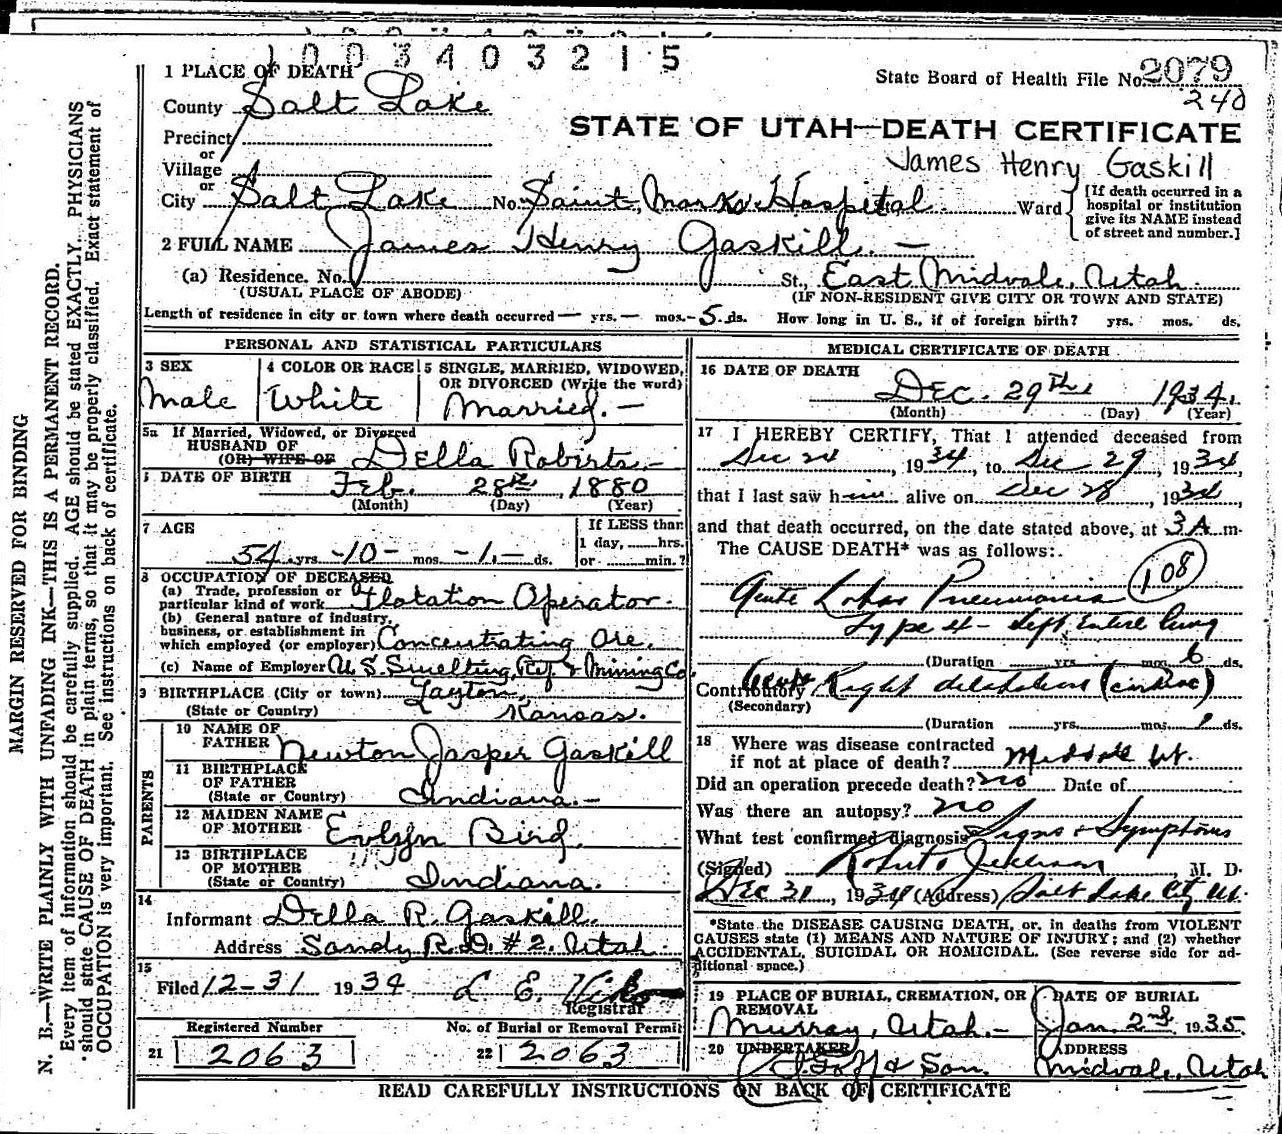 1 0 0 3 4 0 3 2 1 5
1 PLACE OF DEATH
State Board of Health File No. 2079
County Salt Lake
240
Precinct
STATE OF UTAH—DEATH CERTIFICATE
or
Village
James Henry Gaskill
or
City Salt Lake No. Saint Marks Hospital Ward
[If death occurred in a
hospital or institution
give its NAME instead
of street and number.]
2 FULL NAME James Henry Gaskill. —
(a) Residence. No. St., East Midvale, Utah
(USUAL PLACE OF ABODE)
(IF NON-RESIDENT GIVE CITY OR TOWN AND STATE)
Length of residence in city or town where death occurred — yrs. — mos. - 5 ds. How long in U. S., if of foreign birth? yrs. mos. ds.
PERSONAL AND STATISTICAL PARTICULARS
3 SEX
Male
4 COLOR OR RACE
White
5 SINGLE, MARRIED, WIDOWED,
OR DIVORCED (Write the word)
Married. —
5a If Married, Widowed, or Divorced
HUSBAND OF
(OR) WIFE OF Della Roberts. —
DATE OF BIRTH Feb. 28th, 1880
(Month) (Day) (Year)
7 AGE
54 yrs -10- mos. -1.- ds.
If LESS than
1 day, ......hrs.
or .........min.?
8 OCCUPATION OF DECEASED
(a) Trade, profession or
particular kind of work Flotation Operator.
(b) General nature of industry,
business, or establishment in
which employed (or employer) Concentrating Ore.
(c) Name of Employer U. S. Smelting, Ref. & Mining Co.
9 BIRTHPLACE (City or town) Layton,
(State or Country) Kansas.
PARENTS
10 NAME OF
FATHER Newton Jasper Gaskill
11 BIRTHPLACE
OF FATHER
(State or Country) Indiana. —
12 MAIDEN NAME
OF MOTHER Evlyn Bird.
13 BIRTHPLACE
OF MOTHER
(State or Country) Indiana.
14
Informant Della R. Gaskill.
Address Sandy R.D. #2. Utah.
15
Filed 12-31 1934 L E.
Registrar
Registered Number No. of Burial or Removal Permit
21 2063 22 2063
MEDICAL CERTIFICATE OF DEATH
16 DATE OF DEATH
Dec. 29th 1934.
(Month) (Day) (Year)
17 I HEREBY CERTIFY, That I attended deceased from
Dec 24, 1934, to Dec 29, 1934,
that I last saw him alive on Dec 28, 1934
and that death occurred, on the date stated above, at 3 A m.
The CAUSE DEATH* was as follows:
108
Acute Lobar Pneumonia
Type 4 - Left Entire lung
(Duration yrs. mos. 6 ds.
Contributory Acute Right dilatation (cardiac)
(Secondary)
(Duration yrs. mos. 1 ds.
18 Where was disease contracted
if not at place of death? Midvale Ut.
Did an operation precede death? no Date of
Was there an autopsy? no
What test confirmed diagnosis Signs & Symptoms
(Signed) M. D.
Dec 31, 1934 (Address) Salt Lake City Ut.
*State the DISEASE CAUSING DEATH, or, in deaths from VIOLENT
CAUSES state (1) MEANS AND NATURE OF INJURY; and (2) whether
ACCIDENTAL, SUICIDAL OR HOMICIDAL. (See reverse side for ad-
ditional space.)
19 PLACE OF BURIAL, CREMATION, OR
REMOVAL
Murray, Utah. —
DATE OF BURIAL
Jan. 2nd 1935.
20 UNDERTAKER
& Son.
ADDRESS
Midvale, Utah
READ CAREFULLY INSTRUCTIONS ON BACK OF CERTIFICATE
MARGIN RESERVED FOR BINDING
N. B.—WRITE PLAINLY WITH UNFADING INK—THIS IS A PERMANENT RECORD.
Every item of information should be carefully supplied. AGE should be stated EXACTLY. PHYSICIANS
should state CAUSE OF DEATH in plain terms, so that it may be properly classified. Exact statement of
OCCUPATION is very important. See instructions on back of certificate.